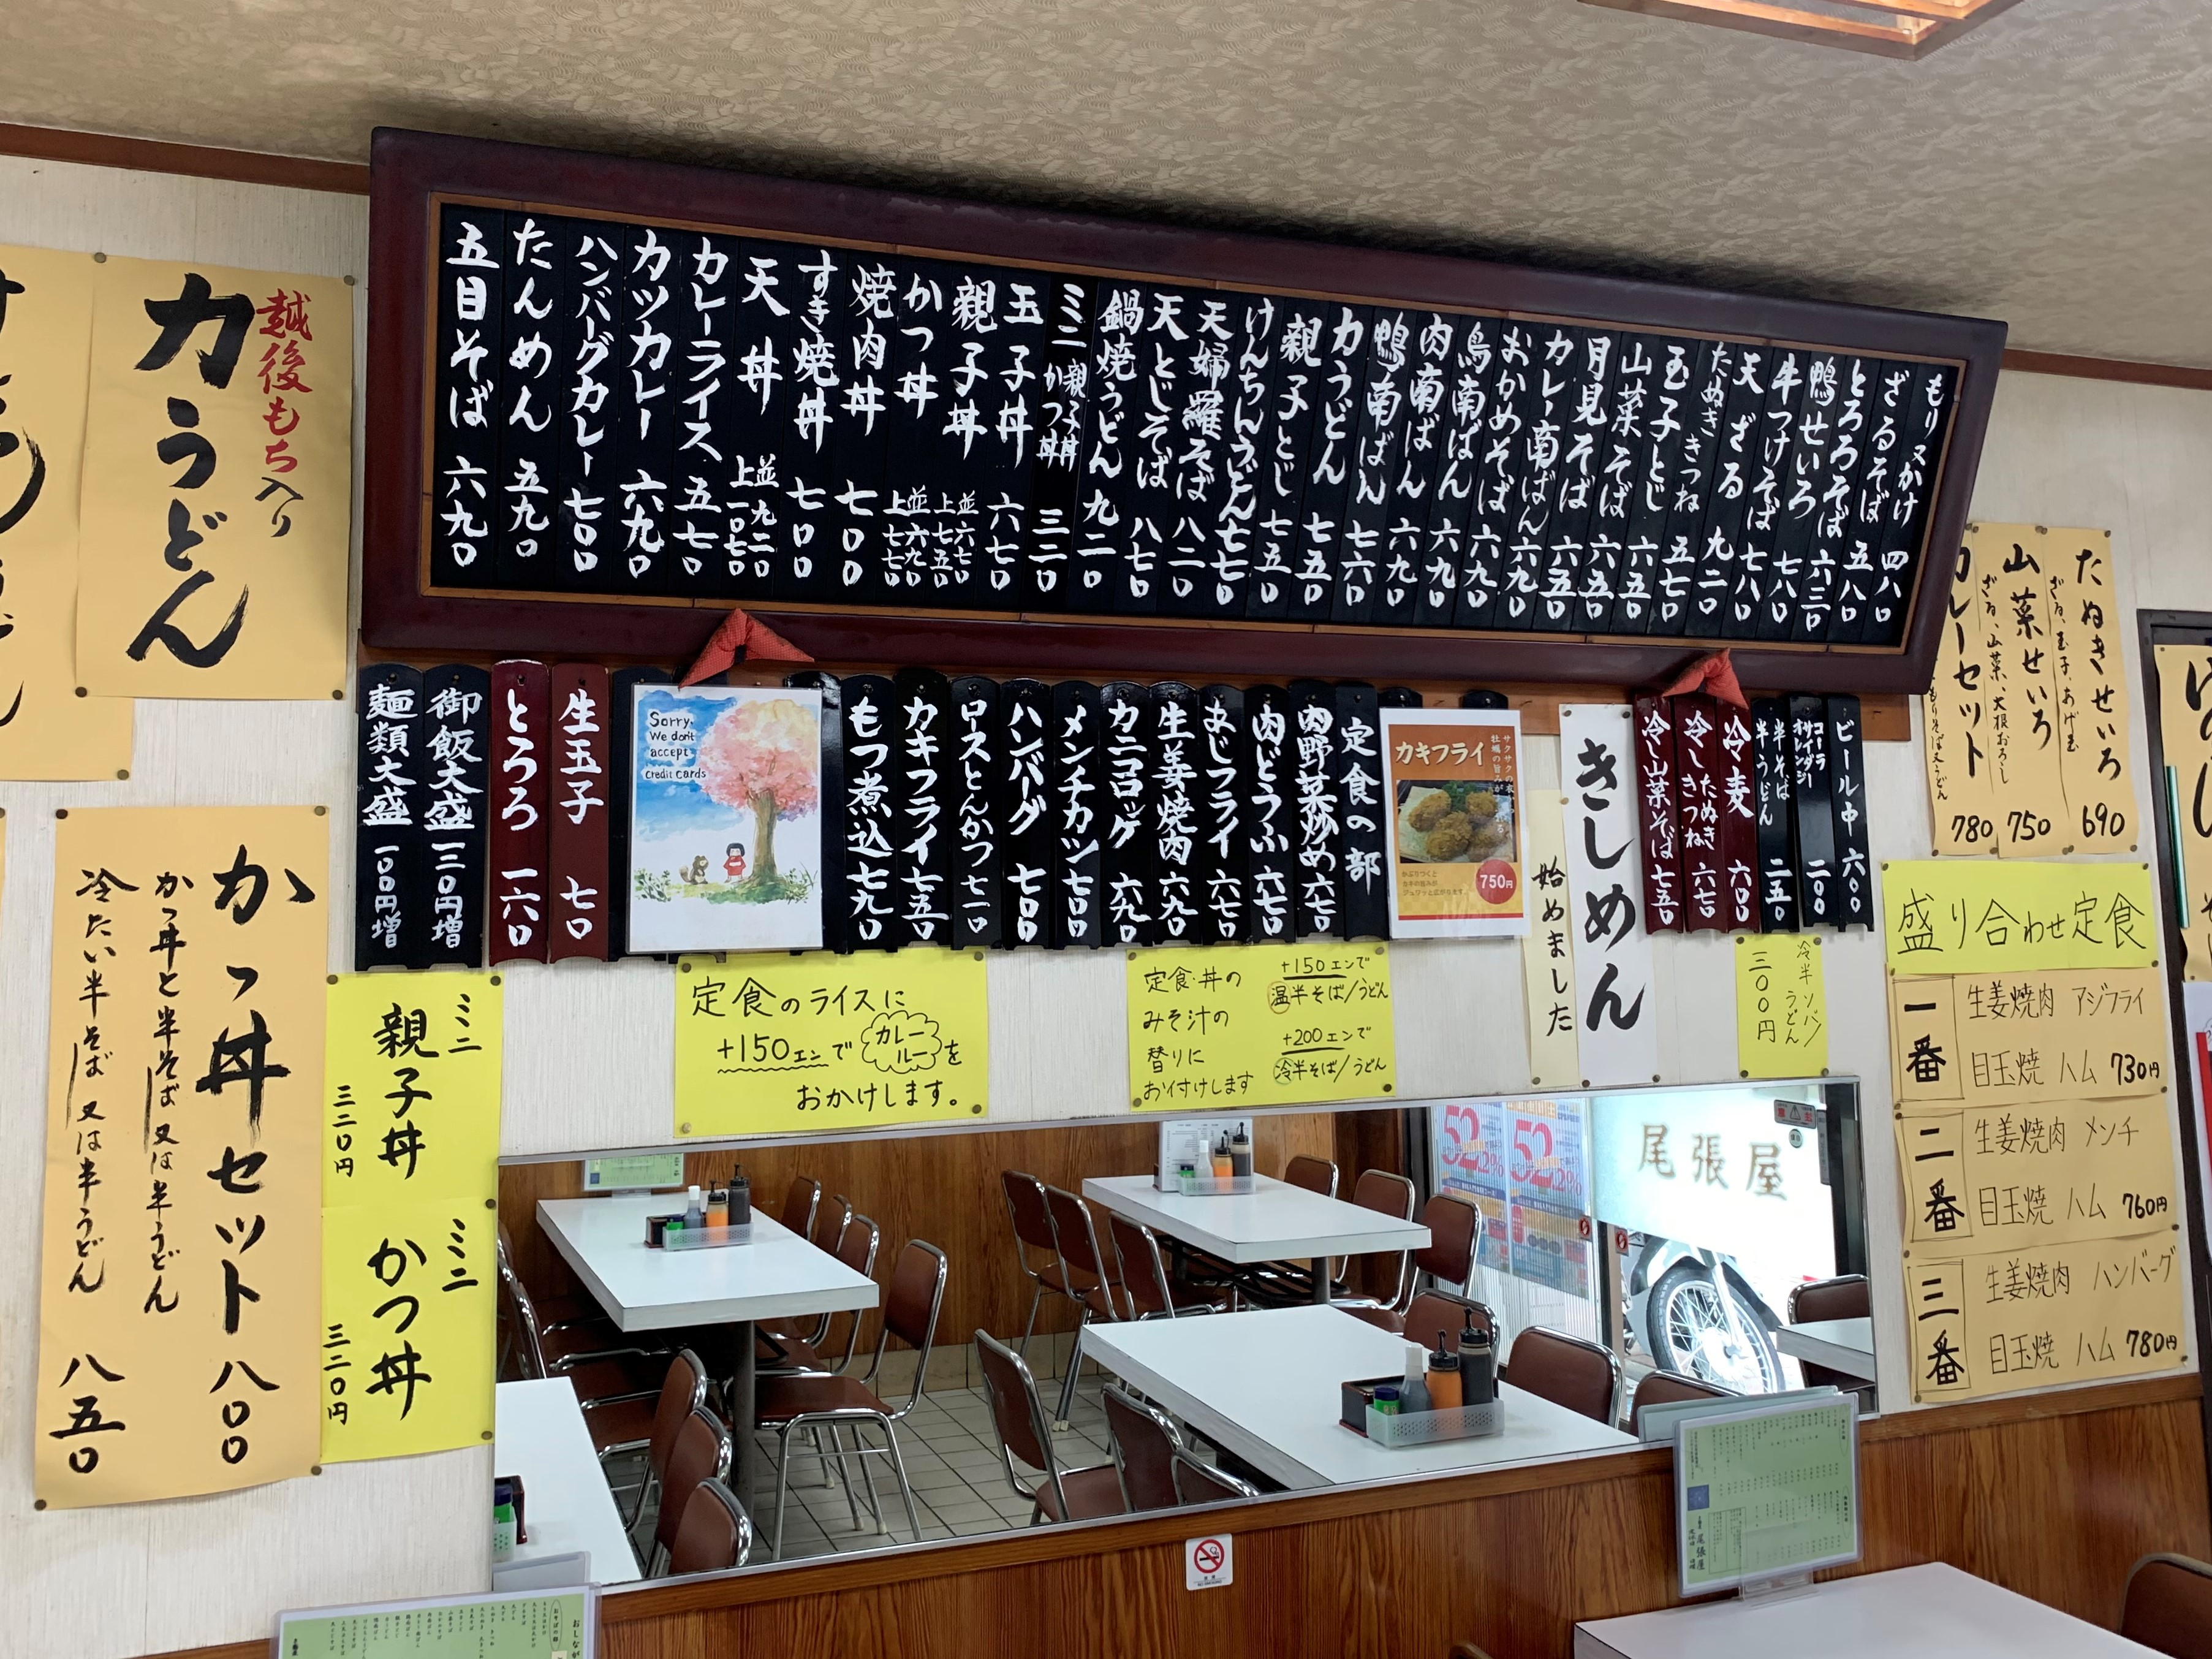 もり又かけ 四八〇
ざるそば 五八〇
とろろそば 六三〇
鴨せいろ 七八〇
牛つけそば 七八〇
天ざる 九二〇
たぬき きつね 五七〇
玉子とじ 六五〇
山菜そば 六五〇
月見そば 六五〇
カレー南ばん 六九〇
おかめそば 六九〇
鳥南ばん 六九〇
肉南ばん 六九〇
鴨南ばん 七六〇
力うどん 七五〇
親子とじ 七五〇
けんちんうどん 七七〇
天婦羅そば 八二〇
天とじそば 八七〇
鍋焼うどん 九二〇
ミニ 親子丼 かつ丼 三二〇
玉子丼 六七〇
親子丼 並六七〇 上七五〇
かつ丼 並六九〇 上七七〇
焼肉丼 七〇〇
すき焼丼 七〇〇
天丼 並九二〇 上一〇七〇
カレーライス 五七〇
カツカレー 六九〇
ハンバーグカレー 七〇〇
たんめん 五九〇
五目そば 六九〇
ビール中 六〇〇
コーラ サイダー オレンジ 二〇〇
半そば 半うどん 二五〇
冷麦 六〇〇
冷し たぬき きつね 六七〇
冷し山菜そば 七五〇
きしめん
始めました
カキフライ
サクサクの衣
750円
定食の部
肉野菜炒め 六七〇
肉どうふ 六七〇
あじフライ 六七〇
生姜焼肉 六九〇
カニコロッケ 六九〇
メンチカツ 七〇〇
ハンバーグ 七〇〇
ロースとんかつ 七一〇
カキフライ 七五〇
もつ煮込 七九〇
Sorry,
We don't
accept
credit cards
生玉子 七〇
とろろ 一六〇
御飯大盛 一二〇円増
麺類大盛 一〇〇円増
越後もち入り
力うどん
かつ丼セット 八〇〇
かつ丼と半そば又は半うどん
冷たい半そば又は半うどん 八五〇
ミニ
親子丼
三二〇円
ミニ
かつ丼
三二〇円
定食のライスに
+150エンで カレールーを
おかけします。
定食・丼の
みそ汁の
替りに
お付けします
+150エンで
温半そば/うどん
+200エンで
冷半そば/うどん
冷半 ソバ/うどん
三〇〇円
たぬきせいろ 690
ざる、玉子、あげ玉
山菜せいろ 750
ざる、山菜、大根おろし
カレーセット 780
盛り合わせ定食
一番 生姜焼肉 アジフライ
目玉焼 ハム 730円
二番 生姜焼肉 メンチ
目玉焼 ハム 760円
三番 生姜焼肉 ハンバーグ
目玉焼 ハム 780円
尾張屋
尾張屋